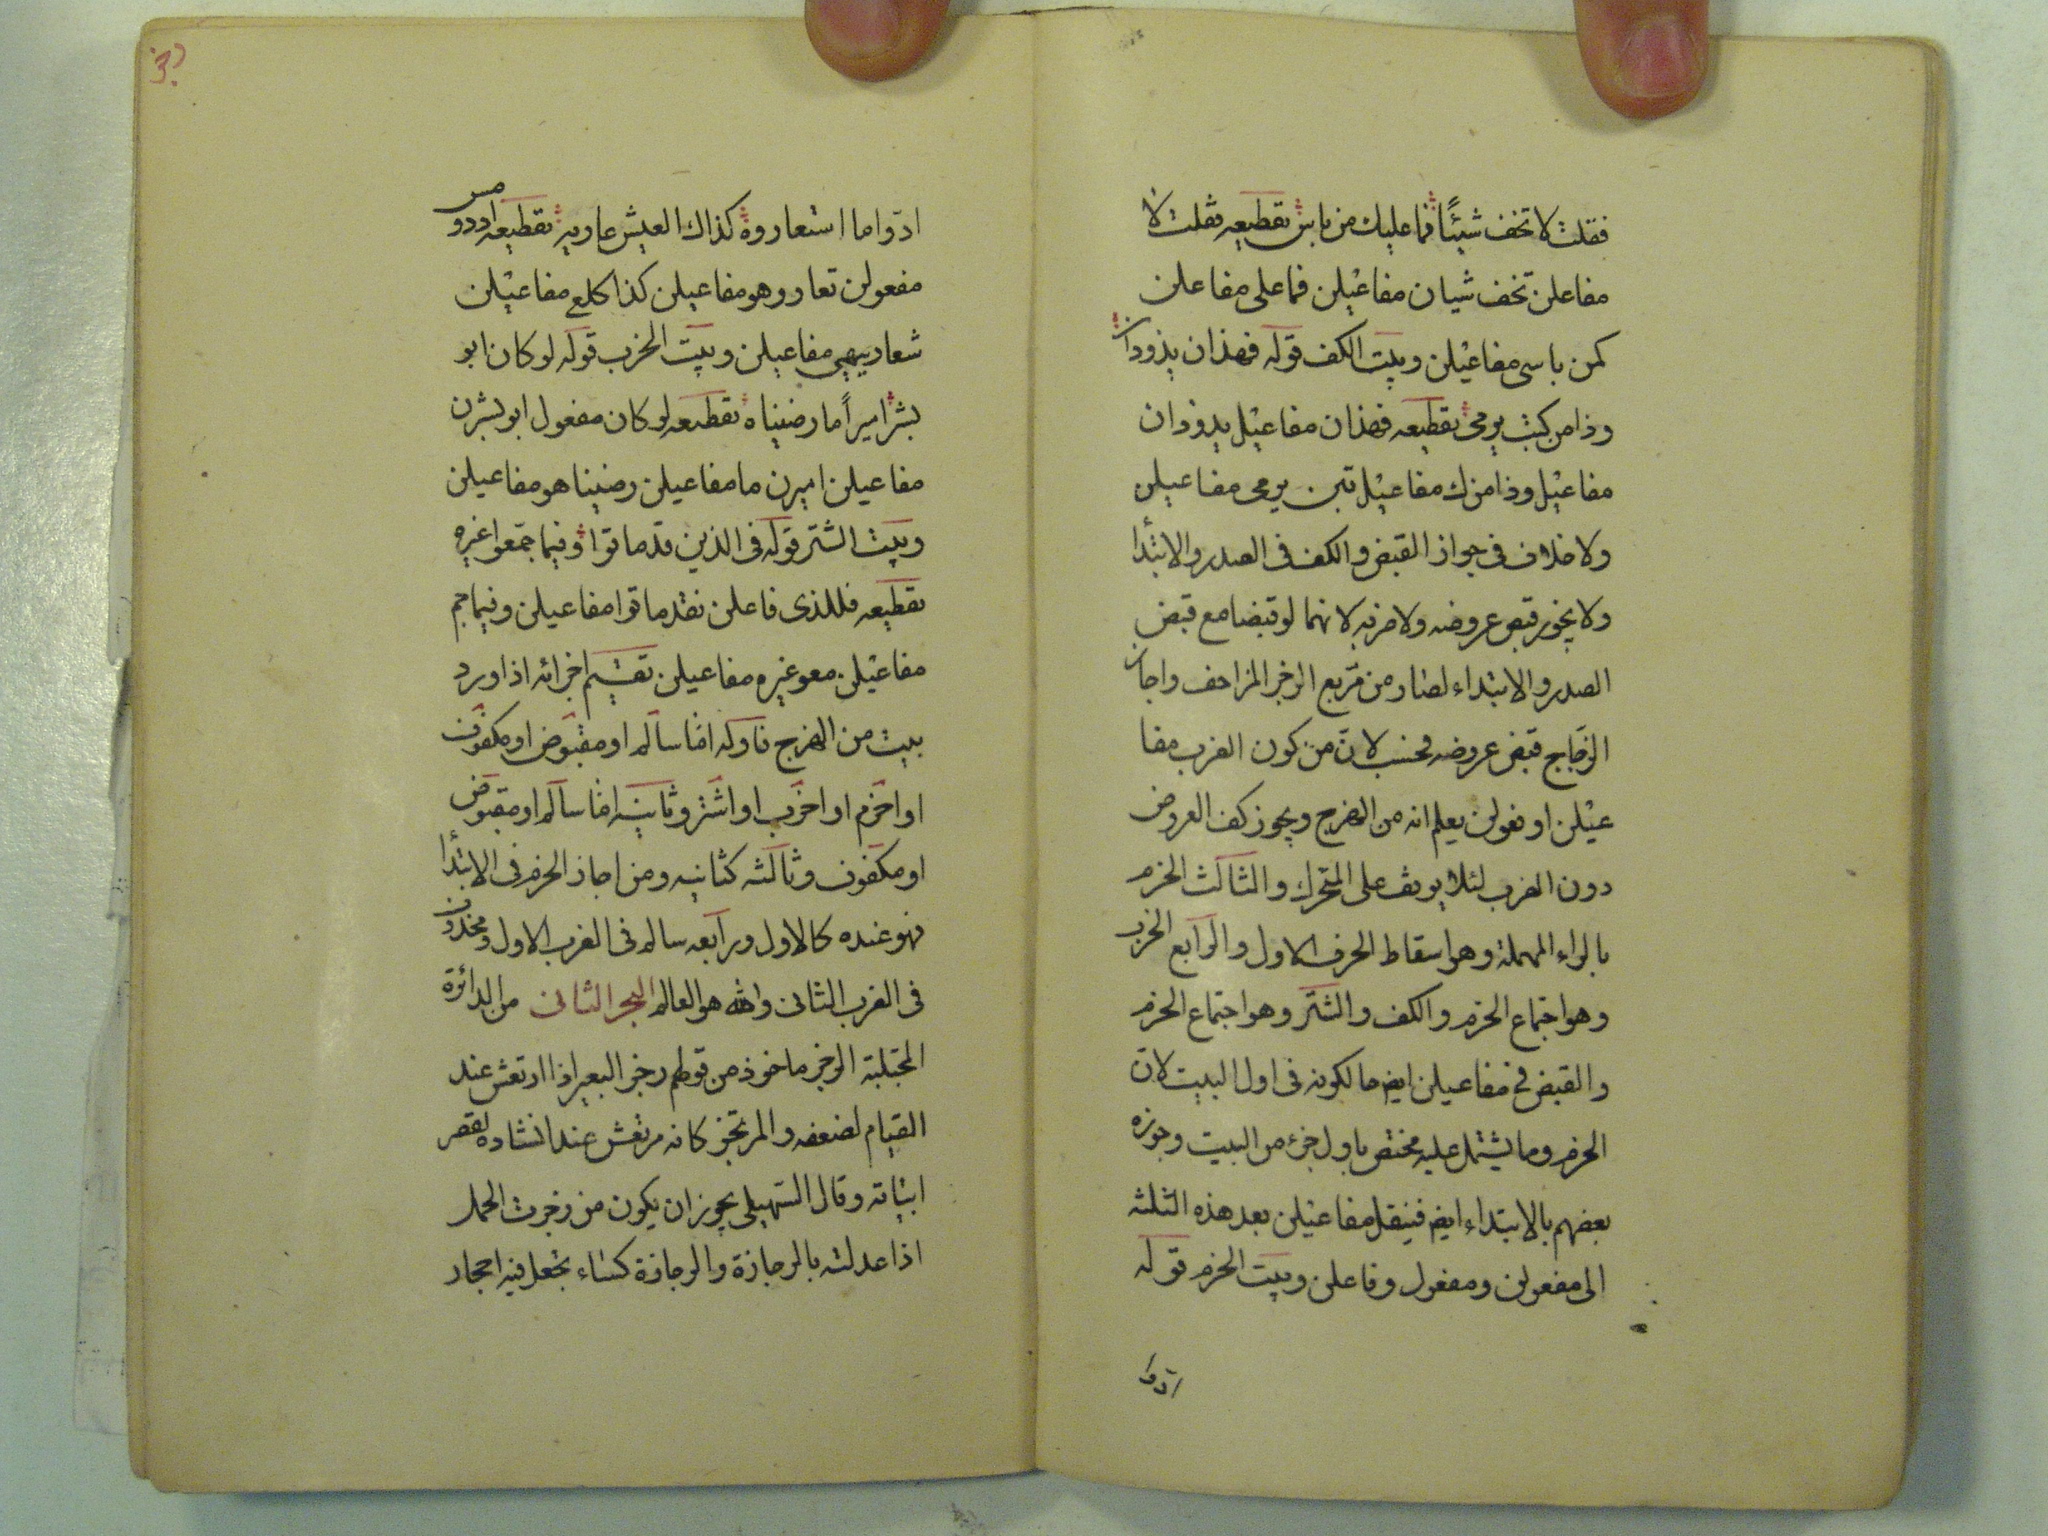 فقلت لا تخف شيئًا فما عليك من باس تقطيعه فقلت لا
مفاعلن تخف شيان مفاعيلن فما على مفاعلن
كمن باسى مفاعيلن وبيت الكف قوله فهذان يذودان
وذا من كثب يرمى تقطيعه فهذان مفاعيل يذودان
مفاعيل وذا من ك مفاعيل ثبن يرمى مفاعيلن
ولا خلاف فى جواز القبض والكف فى الصدر والابتدأ
ولا يجوز قبض عروضه ولا ضربه لانهما لو قبضا مع قبض
الصدر والابتداء لصار من مربع الرجز المزاحف واجاز
الزجاج قبض عروضه فحسب لانّ من كون الضرب مفا
عيلن او فعولن يعلم انه من الهزج ويجوز كف العروض
دون الضرب لئلا يوقف على المتحرك والثالث الخرم
بالراء المهملة وهو اسقاط الحرف الاول والرابع الخرب
وهو اجتماع الخرم والكف والشتر وهو اجتماع الخرم
والقبض فى مفاعيلن ايضا لكونه فى اول البيت لانّ
الخرم وما يشتمل عليه مختص باول جزء من البيت وجوزه
بعضهم بالابتداء ايضا فينقل مفاعيلن بعد هذه الثلثه
الى مفعولن ومفعول وفاعلن وبيت الخرم قوله
ادّوا
ادّوا ما استعاروه كذاك العيش عاريه تقطيعه اددومس
مفعولن تعاروهو مفاعيلن كذا كلعى مفاعيلن
شعاريهى مفاعيلن وبيت الخرب قوله لو كان ابو
بشر اميراً ما رضيناه تقطيعه لو كان مفعول ابو بشرن
مفاعيلن اميرن ما مفاعيلن رضيناهو مفاعيلن
وبيت الشتر قوله فى الذين قد ماتوا وفيما جمّعوا عبره
تقطيعه فللذى فاعلن نقد ماتوا مفاعيلن وفيما جم
مفاعيلن معو عبره مفاعيلن تقسيم اجزائه اذا ورد
بيت من الهزج فاوله امّا سالم او مقبوض او مكفوف
او اخرم او اخرب او اشتر وثانيه امّا سالم او مقبوض
او مكفوف وثالثه كثانيه ومن اجاز الخرم فى الابتدأ
فهو عنده كالاول ورابعه سالم فى الضرب الاول ومحذوف
فى الضرب الثانى والله هو العالم البحر الثانى من الدائرة
المجتلبة الرجز ماخوذ من قولهم رجز البعير اذا ارتعش عند
القيام لضعفه والمرتجز كانه مرتعش عند انشاده لقصر
ابياته وقال السهيلى يجوز ان يكون من رجزت الحمل
اذا عدلته بالرجازة والرجازة كساء تجعل فيه احجار